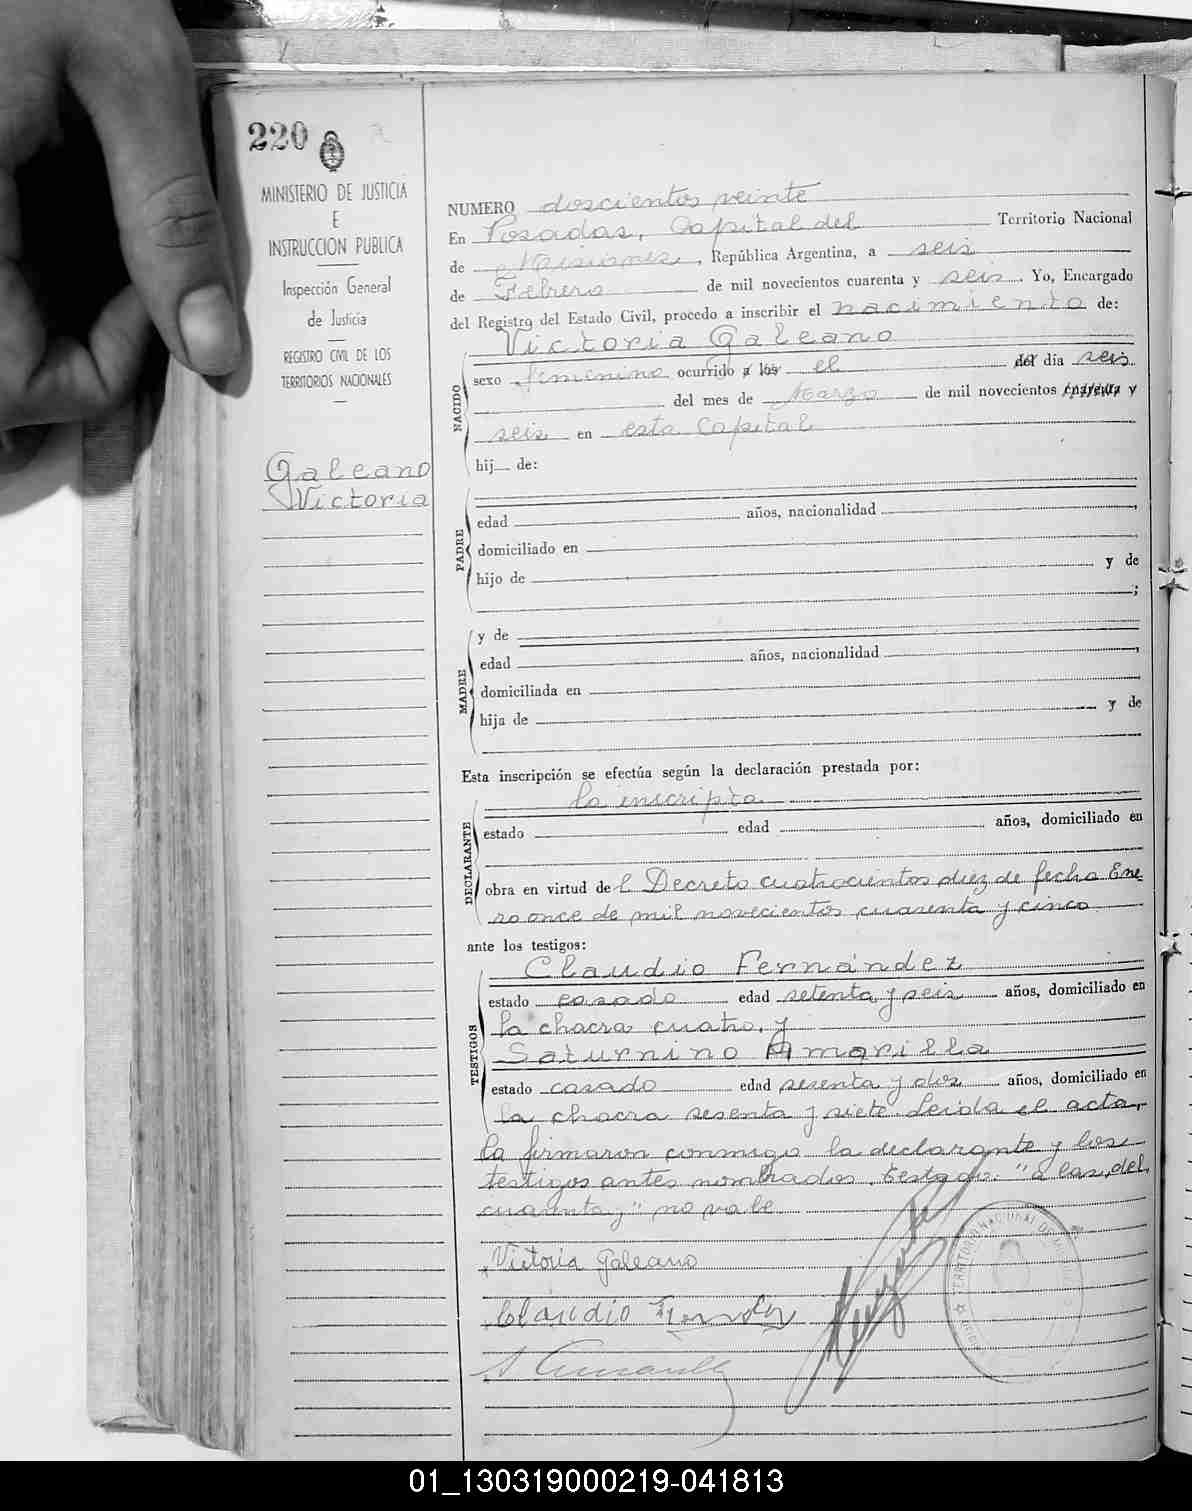 220
MINISTERIO DE JUSTICIA
E
INSTRUCCION PUBLICA
Inspección General
de Justicia
REGISTRO CIVIL DE LOS
TERRITORIOS NACIONALES
Galeano
Victoria
NUMERO doscientos veinte
En Posadas, Capital del Territorio Nacional
de Misiones, República Argentina, a seis
de Febrero de mil novecientos cuarenta y seis. Yo, Encargado
del Registro del Estado Civil, procedo a inscribir el nacimiento de:
Victoria Galeano
NACIDO
sexo femenino ocurrido a los el del día seis
del mes de Marzo de mil novecientos cuarenta y
seis en esta Capital
hij de:
PADRE
edad años, nacionalidad ,
domiciliado en
hijo de y de
;
MADRE
y de
edad años, nacionalidad ,
domiciliada en
hija de y de
Esta inscripción se efectúa según la declaración prestada por:
la inscripta
DECLARANTE
estado edad años, domiciliado en
obra en virtud del Decreto cuatrocientos diez de fecha Ene-
ro once de mil novecientos cuarenta y cinco
ante los testigos:
Claudio Fernández
TESTIGOS
estado casado edad setenta y seis años, domiciliado en
la chacra cuatro, y
Saturnino Amarilla
estado casado edad sesenta y dos años, domiciliado en
la chacra sesenta y siete. Leída el acta,
la firmaron conmigo la declarante y los
testigos antes nombrados. Testado: "a los, del,
cuarenta y" no vale
Victoria Galeano
Claudio
S Amarilla
TERRITORIO NACIONAL DE
01_130319000219-041813